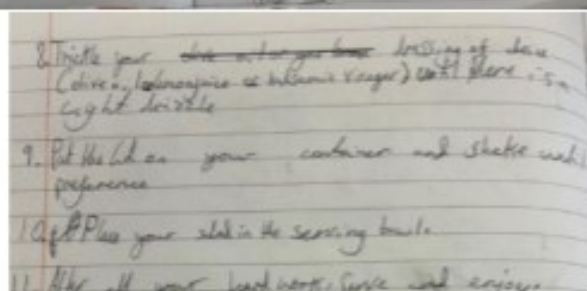 8. Trickle your dressing of
(olive, lemon juice or balsamic vinegar) until there is a
light drizzle
9. Put the lid on your container and shake until
preference
10. Place your salad in the serving bowl.
11. After all your hard work, serve and enjoy.